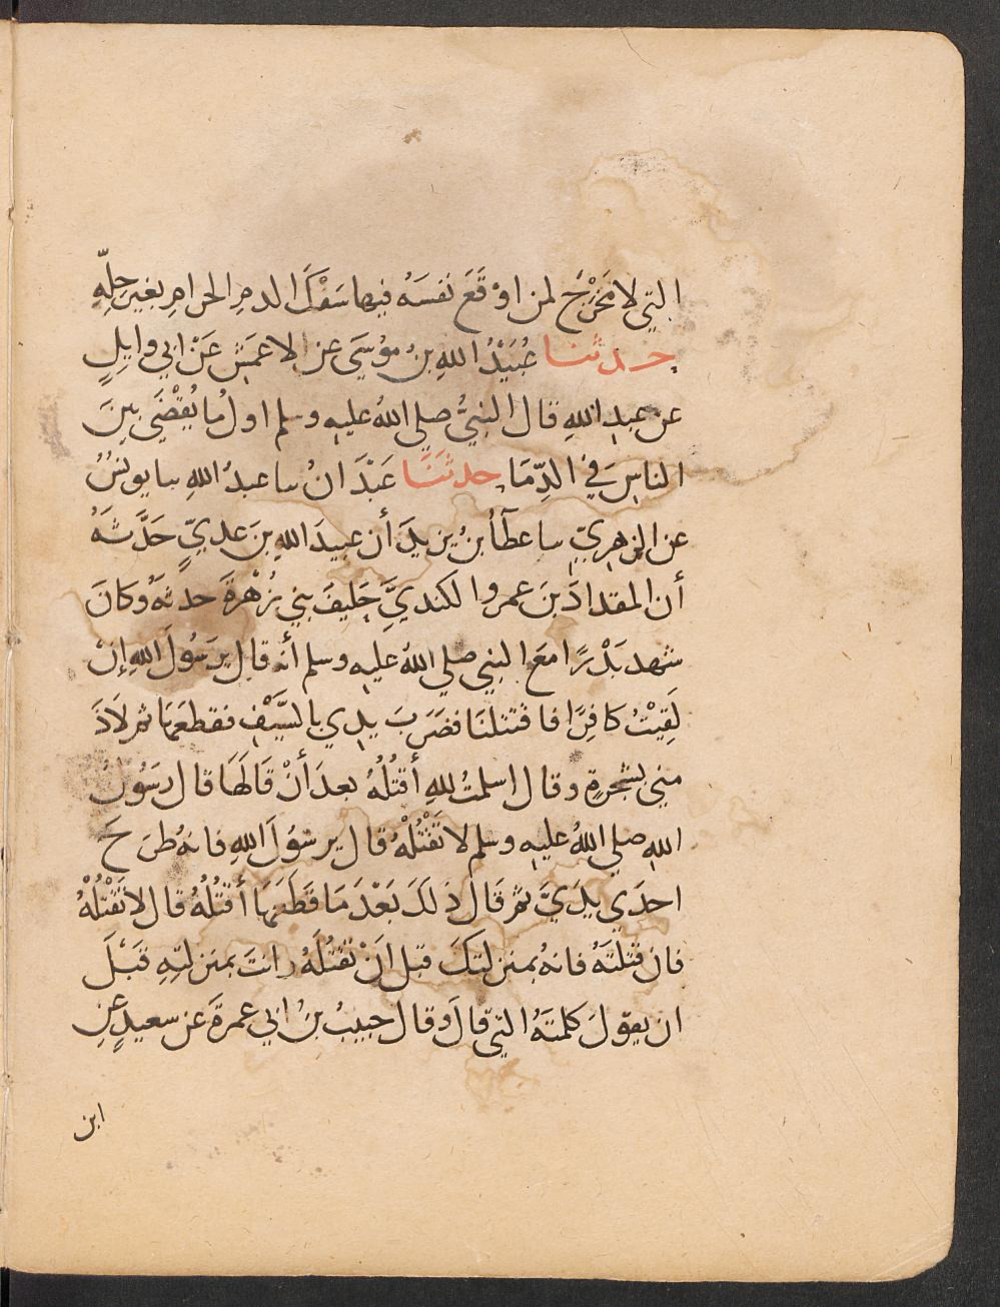 التي لا مَخْرَجَ لمن اوْقَعَ نفسَهُ فيها سَفْكَ الدمِ الحرامِ بغيرِ حِلِّهِ
حدثنا عُبَيْدُ اللهِ بنُ مُوْسَى عن الاعمَشِ عَنْ ابي وايلٍ
عن عبدِ اللهِ قال النبيُّ صلي اللهُ عليهِ وسلم اولُ ما يُقْضَي بينَ
الناسِ في الدِّمَا حدثَنَا عَبْدَانُ سا عبدُ اللهِ سا يونسُ
عن الزهريِّ سا عطآُ بنُ يزيدَ أن عبيدَ اللهِ بنَ عديٍّ حَدَّثَهُ
أن المقدادَ بنَ عمروا لكنديَّ حَليفَ بني زُهْرةَ حدثهُ وكانَ
شهد بَدْرًا معَ النبي صلي اللهُ عليهِ وسلم أنه قال يرَسُولَ اللهِ إنْ
لَقِيْتُ كافِرًا فاقتتلنَا فضَرَبَ يدي بالسَّيْفِ فقطعَها ثم لاَذَ
مني بشجرةٍ وقال اسلمتُ للهِ أقتُلُهُ بعدَ أنْ قَالَهَا قال رسَولُ
اللهِ صلي اللهُ عليهِ وسلم لا تَقْتُلْهُ قال يرسُوَلَ اللهِ فانهُ طرَحَ
احدَي يدَيَّ ثم قَالَ ذلَكَ بَعْدَ مَا قَطَعَهَا أقتُلُهُ قال لا تَقْتُلْهُ
فان قتلتَهُ فانهُ بمنزلتِكَ قبل انْ تَقْتُلَهُ وانتَ بمنزلتِهِ قَبْلَ
ان يقولَ كلمتَهُ التي قالَ وقال حبيبُ بنُ ابي عمرةَ عن سعيدٍ عنِ
ابن